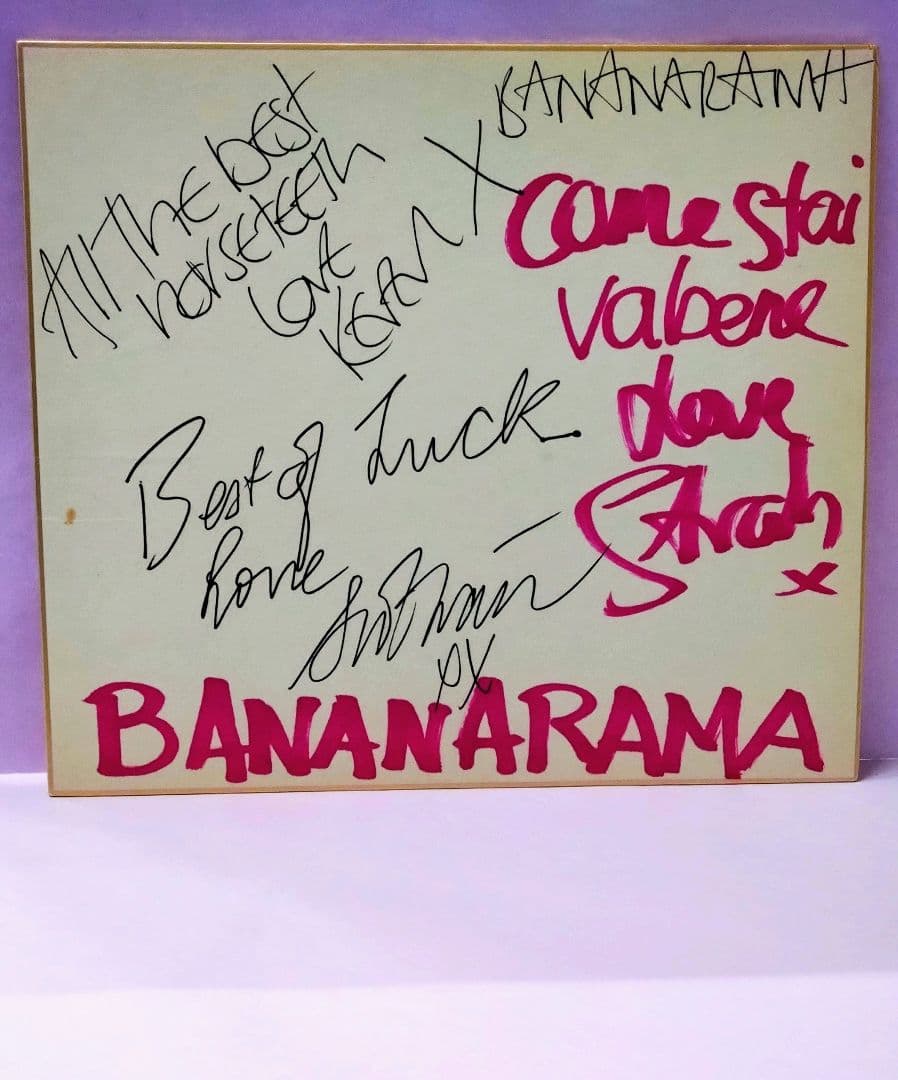 All THE best
HORSETEETH
Love
KERAN X
BANANARAMA
Come stai
Va bene
Love
Sarah
x
Best of Luck
Love
XX
BANANARAMA